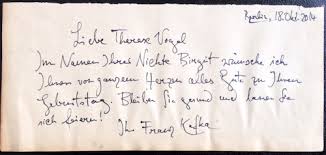 Berlin, 18. Okt. 2014
Liebe Therese Vogel
Im Namen Ihrer Nichte Birgit wünsche ich
Ihnen von ganzem Herzen alles Gute zu Ihrem
Geburtstag. Bleiben Sie gesund und lassen Sie
sich feiern!
Ihr Franz Kafka